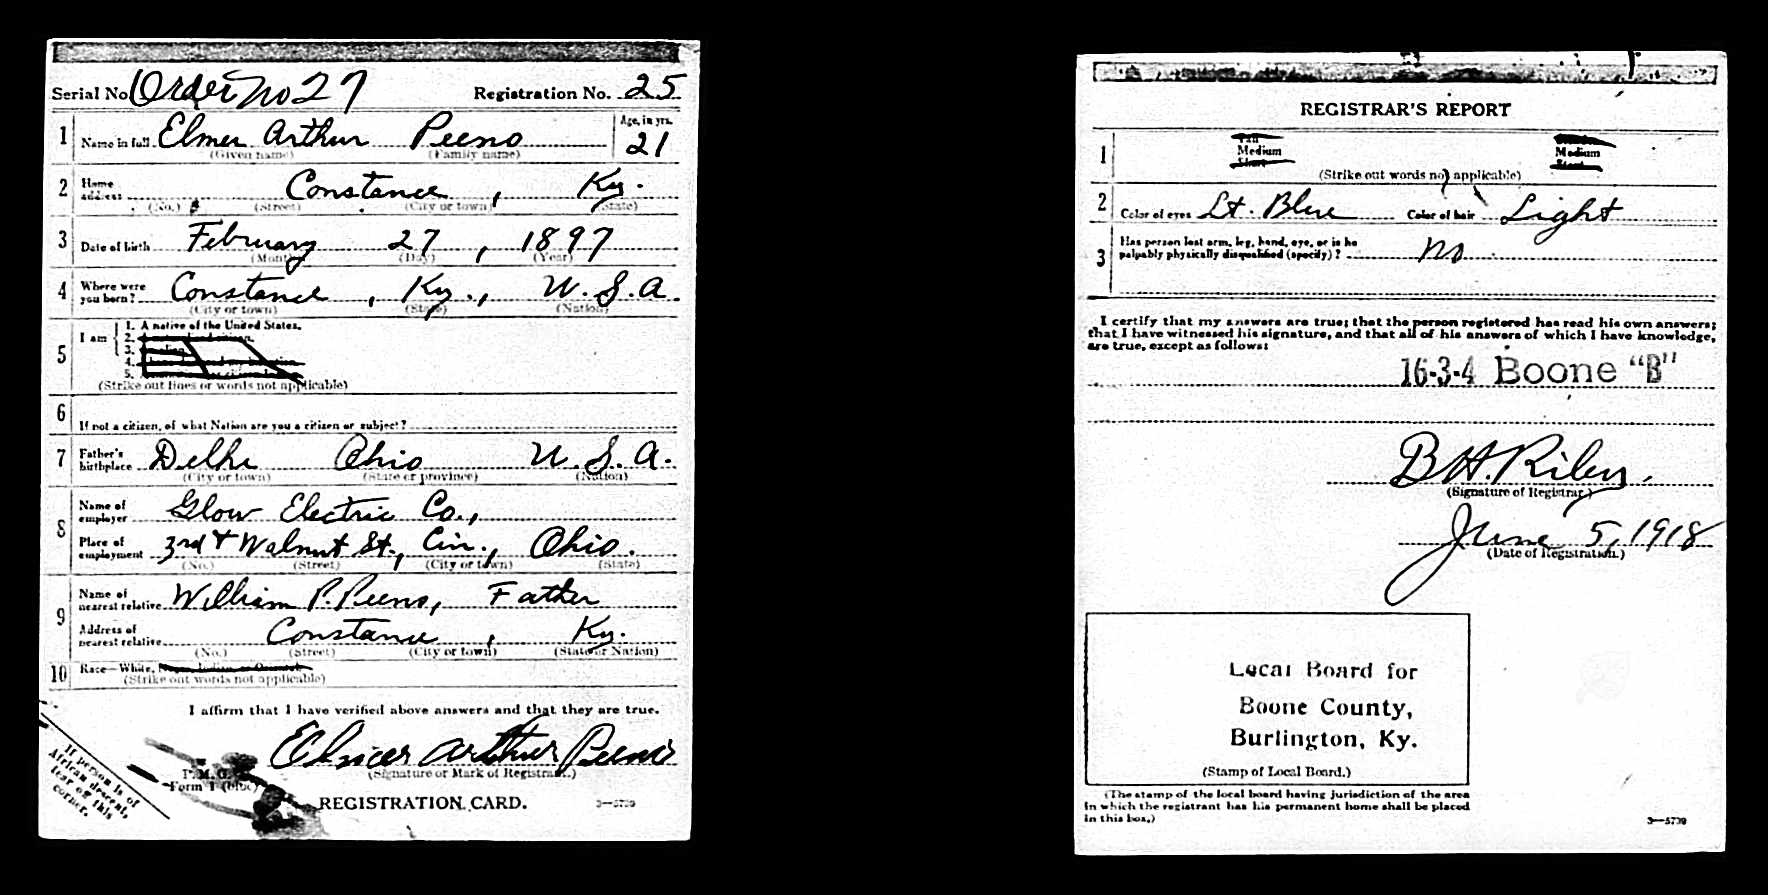 Serial No. Order No 27 Registration No. 25
1 Name in full Elmer Arthur Peeno Age, in yrs. 21
(Given name) (Family name)
2 Home address Constance, Ky.
(No.) (Street) (City or town) (State)
3 Date of birth February 27, 1897
(Month) (Day) (Year)
4 Where were you born? Constance, Ky., U.S.A.
(City or town) (State) (Nation)
5 I am 1. A native of the United States.
2.
3.
4.
5.
(Strike out lines or words not applicable)
6 If not a citizen, of what Nation are you a citizen or subject?
7 Father's birthplace Delhi Ohio U.S.A.
(City or town) (State or province) (Nation)
8 Name of employer Glow Electric Co.,
Place of employment 3rd & Walnut St., Cin., Ohio.
(No.) (Street) (City or town) (State)
9 Name of nearest relative William P. Peeno, Father
Address of nearest relative Constance, Ky.
(No.) (Street) (City or town) (State or Nation)
10 Race—White, Negro, Indian, or Oriental
(Strike out words not applicable)
I affirm that I have verified above answers and that they are true.
Elmer Arthur Peeno
(Signature or Mark of Registrant.)
P. M. G. O.
Form 1 (blue)
REGISTRATION CARD. 3—5739
If person is of
African descent,
tear off this
corner.
REGISTRAR'S REPORT
1 Tall
Medium Medium
Short Stout
(Strike out words not applicable)
2 Color of eyes Lt. Blue Color of hair Light
3 Has person lost arm, leg, hand, eye, or is he
palpably physically disqualified (specify)? No
I certify that my answers are true; that the person registered has read his own answers;
that I have witnessed his signature, and that all of his answers of which I have knowledge,
are true, except as follows:
16-3-4 Boone "B"
B H. Riley,
(Signature of Registrar.)
June 5, 1918
(Date of Registration.)
Local Board for
Boone County,
Burlington, Ky.
(Stamp of Local Board.)
(The stamp of the local board having jurisdiction of the area
in which the registrant has his permanent home shall be placed
in this box.)
3—5739